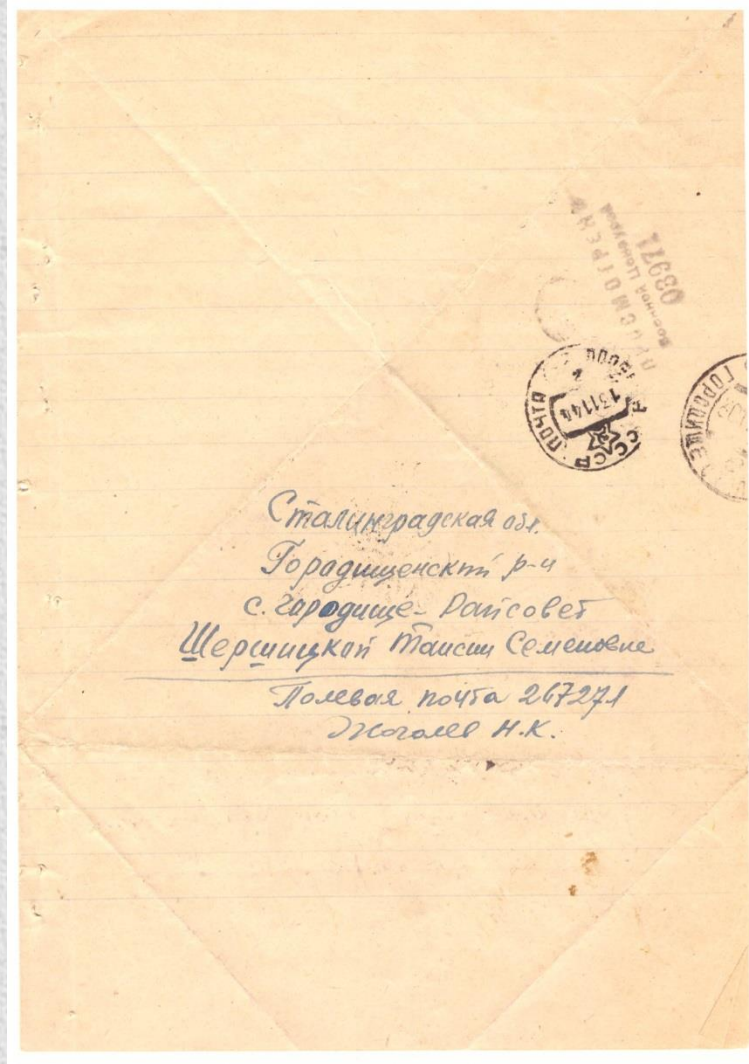 ПРОСМОТРЕНО
Военной Цензурой
03971
СССР ПОЧТА
131144
ГОРОДИЩЕ
Сталинградская обл.
Городищенский р-н
с. Городище - Райсовет
Шершицкой Таисии Семеновне
Полевая почта 267271
Жоголев Н.К.